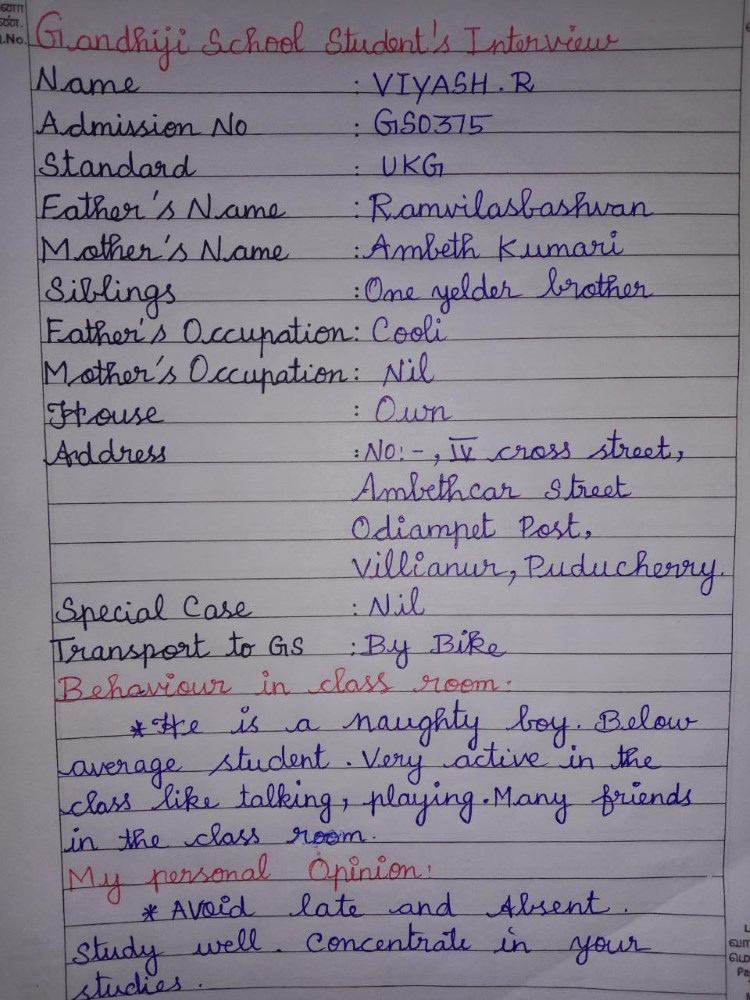 ளான
ண்.
.No.
Gandhiji School Student's Interview
Name : VIYASH.R
Admission No : GS0375
Standard : UKG
Father's Name : Ramvilasbashwan
Mother's Name : Ambeth Kumari
Siblings : One yelder brother
Father's Occupation : Cooli
Mother's Occupation : Nil
House : Own
Address : No:-, IV cross street,
Ambethcar Street
Odiampet Post,
Villianur, Puducherry.
Special Case : Nil
Transport to GS : By Bike
Behaviour in class room:
*He is a naughty boy. Below
average student. Very active in the
class like talking, playing. Many friends
in the class room.
My personal Opinion:
* Avoid late and Absent.
Study well. Concentrate in your
studies.